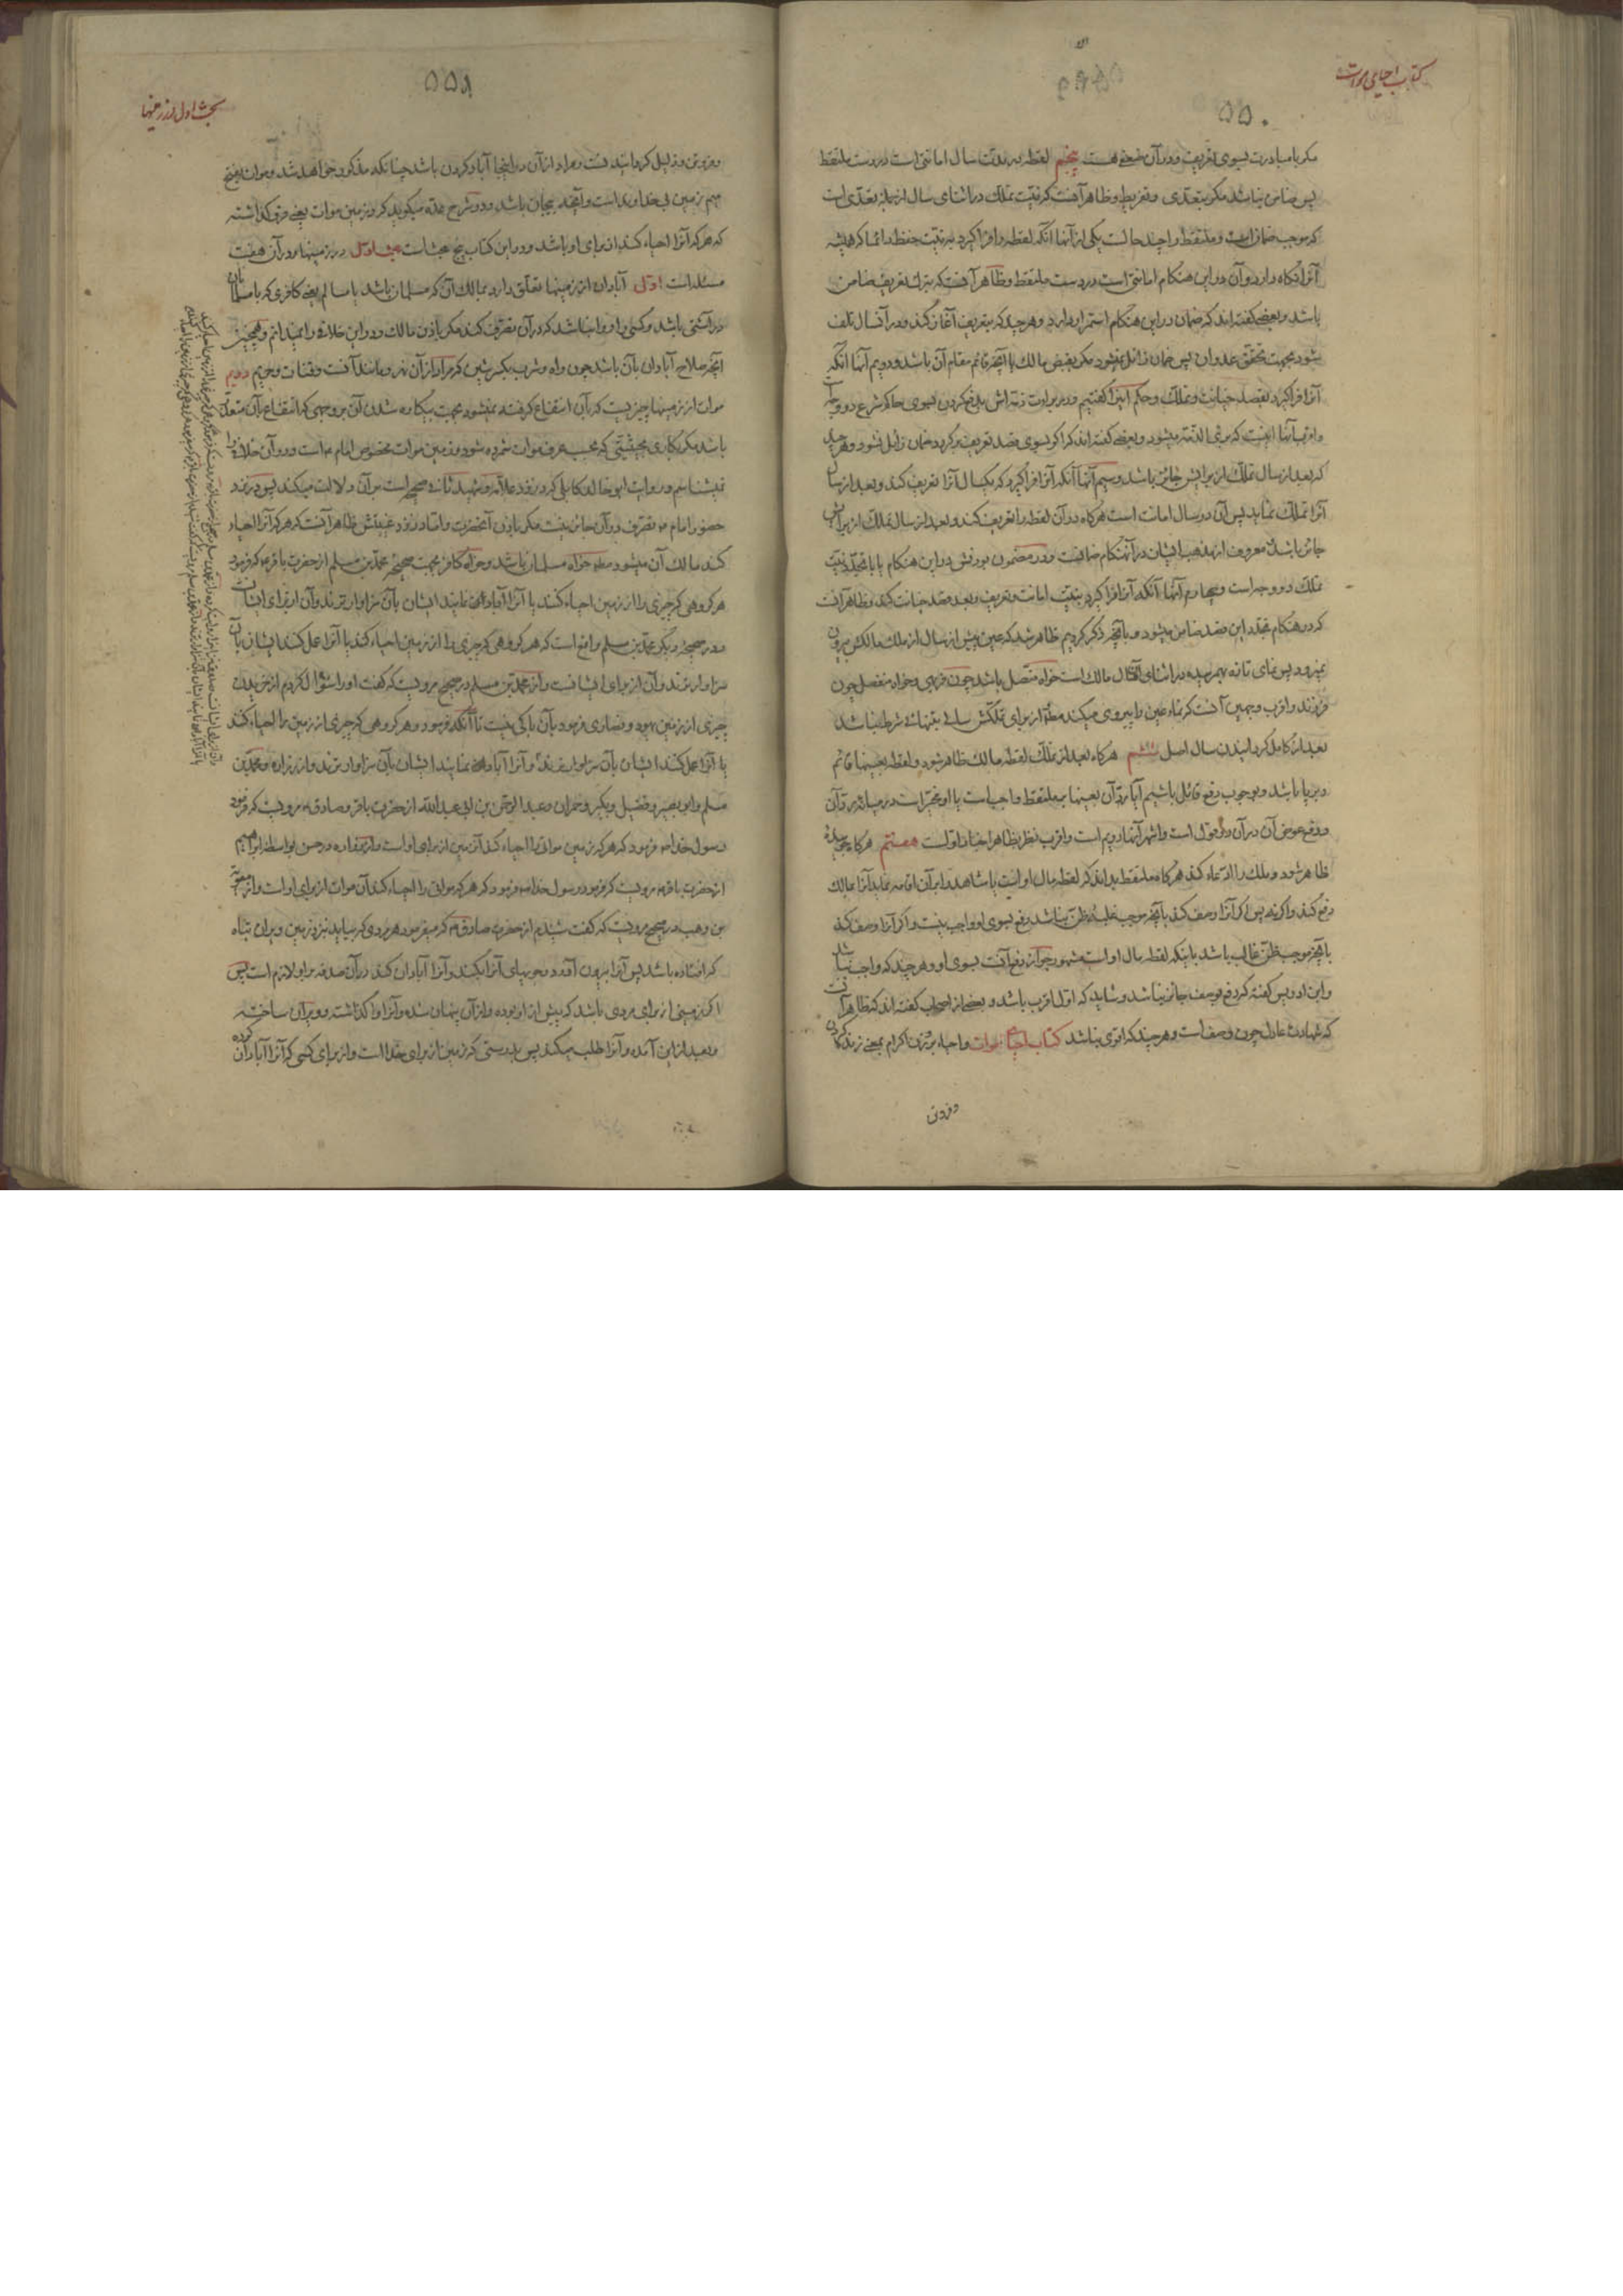 کتاب احیای موات
۵۵۰
مکر با مبادرت بسوی تعریف و در آن ضعفی هست پنجم لقطه در مدت سال امانتی است در دست ملتقط
پس ضامن نباشد مکر بتعدی و تفریط و ظاهر آنست که نیت تملک در اثنای سال از جمله تعدی است
که موجب ضمان است و ملتقط را چند حالت یکی از آنها آنکه لقطه را فرا کیرد به نیت حفظ دائما که همیشه
آنرا نکاه دارد و آن در این هنکام امانتی است در دست ملتقط و ظاهر آنست که بترک تعریف ضامن
باشد و بعضی کفته اند که ضمان در این هنکام استمرار دارد و هر چند که بتعریف آغاز کند و در آنسال تلف
شود بجهت تحقق عدوان پس ضمان زائل نمیشود مکر بقبض مالک یا آنچه قائم مقام آن باشد و دویم آنها آنکه
آنرا فرا کیرد بقصد خیانت و تملک و حکم اینرا کفتیم و در برائت ذمه اش بدفع کردن بسوی حاکم شرع دو وجه است
و اقرب آنها اینست که بری الذمه میشود و بعضی کفته اند که اکر بسوی قصد تعریف برکردد ضمان زائل نشود و هر چند
که بعد از سال تملک از برایش جائز باشد و سیم آنها آنکه آنرا فرا کیرد که یکسال آنرا تعریف کند و بعد از سال
آنرا تملک نماید پس آن در سال امانت است هرکاه در آن لقطه را تعریف کند و بعد از سال تملک از برایش
جائز باشد معروف از مذهب ایشان در آنهنکام ضمانست و در مضمون بودنش در این هنکام یا با تجدید نیت
تملک دو وجه است و چهارم آنها آنکه آنرا فرا کیرد بنیت امانت و تعریف و بعد قصد خیانت کند و ظاهر آنست
که در هنکام تجدد این قصد ضامن میشود و بآنچه ذکر کردیم ظاهر شد که عین پیش از سال از ملک مالکش بیرون
نمیرود پس نمای تازه بهم رسیده در اثنای آنسال مالک است خواه متصل باشد چون فربهی و خواه منفصل چون
فرزند و اقرب و بهمین آنست که نماء عین را پیروی میکند مطلقا از برای تملکش سالی بتنهائی شرط نباشد
بعد از کامل کردانیدن سال اصل ششم هرکاه بعد از تملک لقطه مالک ظاهر شود و لقطه بعینها قائم
و برپا باشد و بوجوب دفع قائل باشیم آیا رد آن بعینها بر ملتقط واجب است یا او مخیر است در میانه رد آن
و دفع عوض آن در آن دو قول است و اشهر آنها دویم است و اقرب نظر بظاهر اخبار اول است هفتم هرکاه جوینده
ظاهر شود و ملک را ادعاء کند هرکاه ملتقط بداند که لقطه مال او است یا شاهد بر آن اقامه نماید آنرا بمالک
دفع کند و اکر نه پس اکر آنرا وصف کند بآنچه موجب غلبه ظن نباشد دفع بسوی او واجب نیست و اکر آنرا وصف کند
بآنچه موجب ظن غالب باشد باینکه لقطه مال او است مشهور جواز دفع آنست بسوی او و هر چند که واجب نباشد
و ابن ادریس کفته که دفع بوصف جائز نباشد و شاید که اول اقرب باشد و بعضی از اصحاب کفته اند که ظاهر آنست
که شهادت عادل چون وصف است و هر چند که اقوی نباشد کتاب احیاء موات و احیاء بر وزن اکرام بمعنی زنده کردن
و فروتن
۵۵۱
بحث اول در زمینها
و فروتن و ذلیل کردانیدنست و مراد از آن در اینجا آباد کردن باشد چنانکه مذکور خواهد شد و موات بفتح
میم زمین بی خداوند است و آنچه بیجان باشد و در شرح عمده میکوید که و زمین موات یعنی فرو کذاشته
که هر که آنرا احیاء کند از برای او باشد و در این کتاب پنج بحث است بحث اول در زمینها و در آن هفت
مسئله است اول آبادان از زمینها تعلق دارد بمالک آن که مسلمان باشد یا مسالم یعنی کافری که با مسلمانان
در آشتی باشد و کسی را روا نباشد که در آن تصرف کند مکر باذن مالک و در این خلافی را نمیدانم و همچنین
آنچه صلاح آبادان بآن باشد چون راه و شرب بکسر شین که مراد از آن نهر و مانند آنست و قنات و حریم دویم
موات از زمینها چیزیست که بآن انتفاع کرفته نمیشود بجهت بیکاره شدن آن بر وجهی که انتفاع بآن متعذر
باشد مکر بکاری بحیثیتی که بحسب عرف موات شمرده شود و زمین موات مخصوص امام ع است و در آن خلافی را
نمیشناسم و روایت ابو خالد کابلی که در نزد علامه و شهید ثانی صحیح است بر آن دلالت میکند پس در نزد
حضور امام ع تصرف در آن جائز نیست مکر باذن آنحضرت و اما در نزد غیبتش ظاهر آنست که هر که آنرا احیاء
کند مالک آن میشود مطلقا خواه مسلمان باشد و خواه کافر بجهت صحیح محمد بن مسلم از حضرت باقر ع که فرمود
هر کروهی که چیزی را از زمین احیاء کنند یا آنرا آبادان نمایند ایشان بآن سزاوارترند و آن از برای ایشانست
و در صحیح دیکر محمد بن مسلم واقع است که هر کروهی که چیزی را از زمین احیاء کند یا آنرا عمل کند ایشان بآن
سزاوارترند و آن از برای ایشانست و از محمد بن مسلم در صحیح مرویست که کفت او را سؤال کردم از خریدن
چیزی از زمین یهود و نصاری فرمود بآن باکی نیست تا آنکه فرمود و هر کروهی که چیزی از زمین را احیاء کند
یا آنرا عمل کند ایشان بآن سزاوارترند و آنرا آبادان نمایند ایشان بآن سزاوارترند و از زراره و محمد بن
مسلم و ابو بصیر و فضیل و بکیر و حمران و عبد الرحمن بن ابی عبد الله از حضرت باقر و صادق ع مرویست که فرمود
رسول خدا ص فرمود که هر که زمین مواتی را احیاء کند آن زمین از برای او است و از زراره در حسن بواسطه ابراهیم
از حضرت باقر ع مرویست که فرمود رسول خدا ص فرمود که هر که مواتی را احیاء کند آن موات از برای او است و از معویة
بن وهب در صحیح مرویست که کفت شنیدم از حضرت صادق ع که میفرمود هر مردی که بیاید نزد زمین ویران تباه
که افتاده باشد پس آنرا بیرون آورد و جویهای آنرا بکند و آنرا آبادان کند در آن صدقه بر او لازم است پس
اکر زمینی از برای مردی باشد که پیش از او بوده و از آن پنهان شده و آنرا وا کذاشته و ویران ساخته
و بعد از این آمده و آنرا طلب میکند پس بدرستی که زمین از برای خدا است و از برای کسی که آنرا آبادان کرده